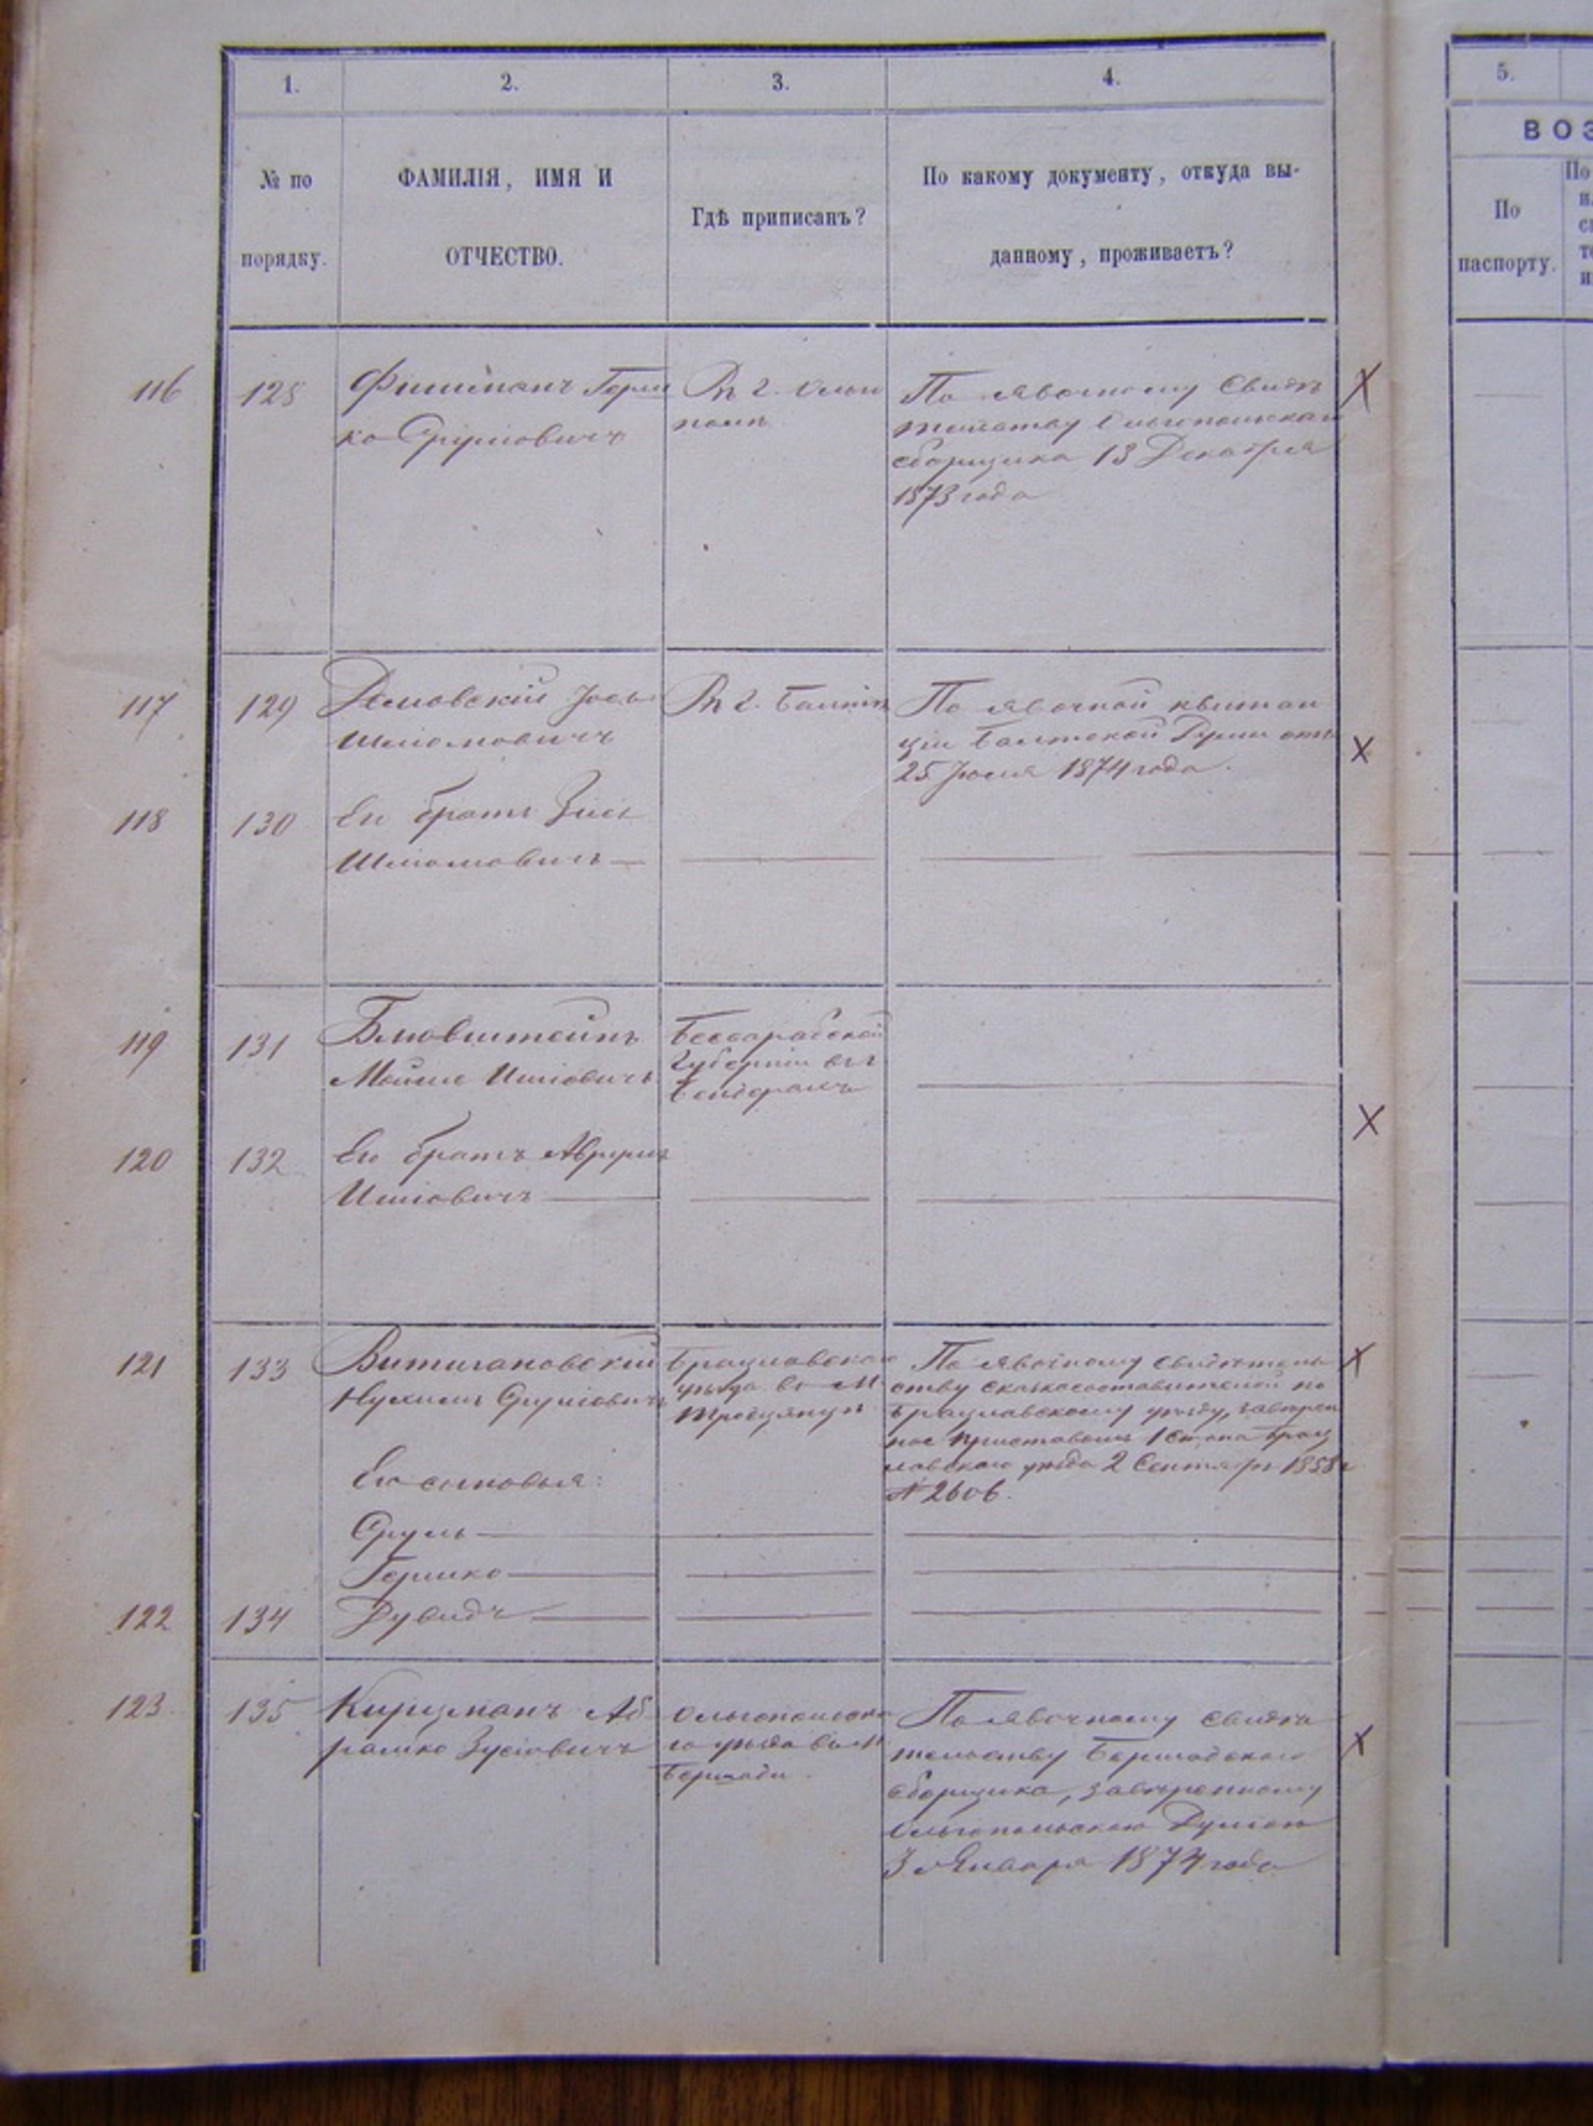 1.
2.
3.
4.
5.
№ по
порядку.
ФАМИЛІЯ, ИМЯ И
ОТЧЕСТВО.
Гдѣ приписанъ?
По какому документу, откуда вы-
данному, проживаетъ?
ВОЗ
По
паспорту.
По
116
128
Фишманъ Герш
ко Сруліовичъ
Въ г. Ольго
полѣ
По явочному Свидѣ
тельству Ольгопольскаго
сборщика 13 Декабря
1873 года
117
129
Іось
Шліомовичъ
Въ г. Балтѣ
По явочной квитан
ціи Балтской Думы отъ
25 Іюля 1874 года.
118
130
Его братъ Зись
Шліомовичъ
119
131
Блювштейнъ
Мойше Ицковичъ
Бессарабской
Губерніи въ г
Бендерахъ
120
132
Его братъ Аврумъ
Ицковичъ
121
133
Витигановскій
Нухимъ Сруліовичъ
Брацлавскаго
уѣзда въ м
Тростянцѣ
По явочному свидѣтель
ству сказкосоставителей по
Брацлавскому уѣзду, завѣрен
ное Приставомъ 1 Стана Брац
лавскаго уѣзда 2 Сентября 1858 г
№ 2606.
Его сыновья:
Сруль
Гершко
122
134
Дувидъ
123
135
Кирцманъ Аб
рамко Зусіовичъ
Ольгопольска
го уѣзда въ м
Бершади.
По явочному свидѣ
тельству Бершадскаго
сборщика, завѣренному
Ольгопольскою Думою
3 Января 1874 года